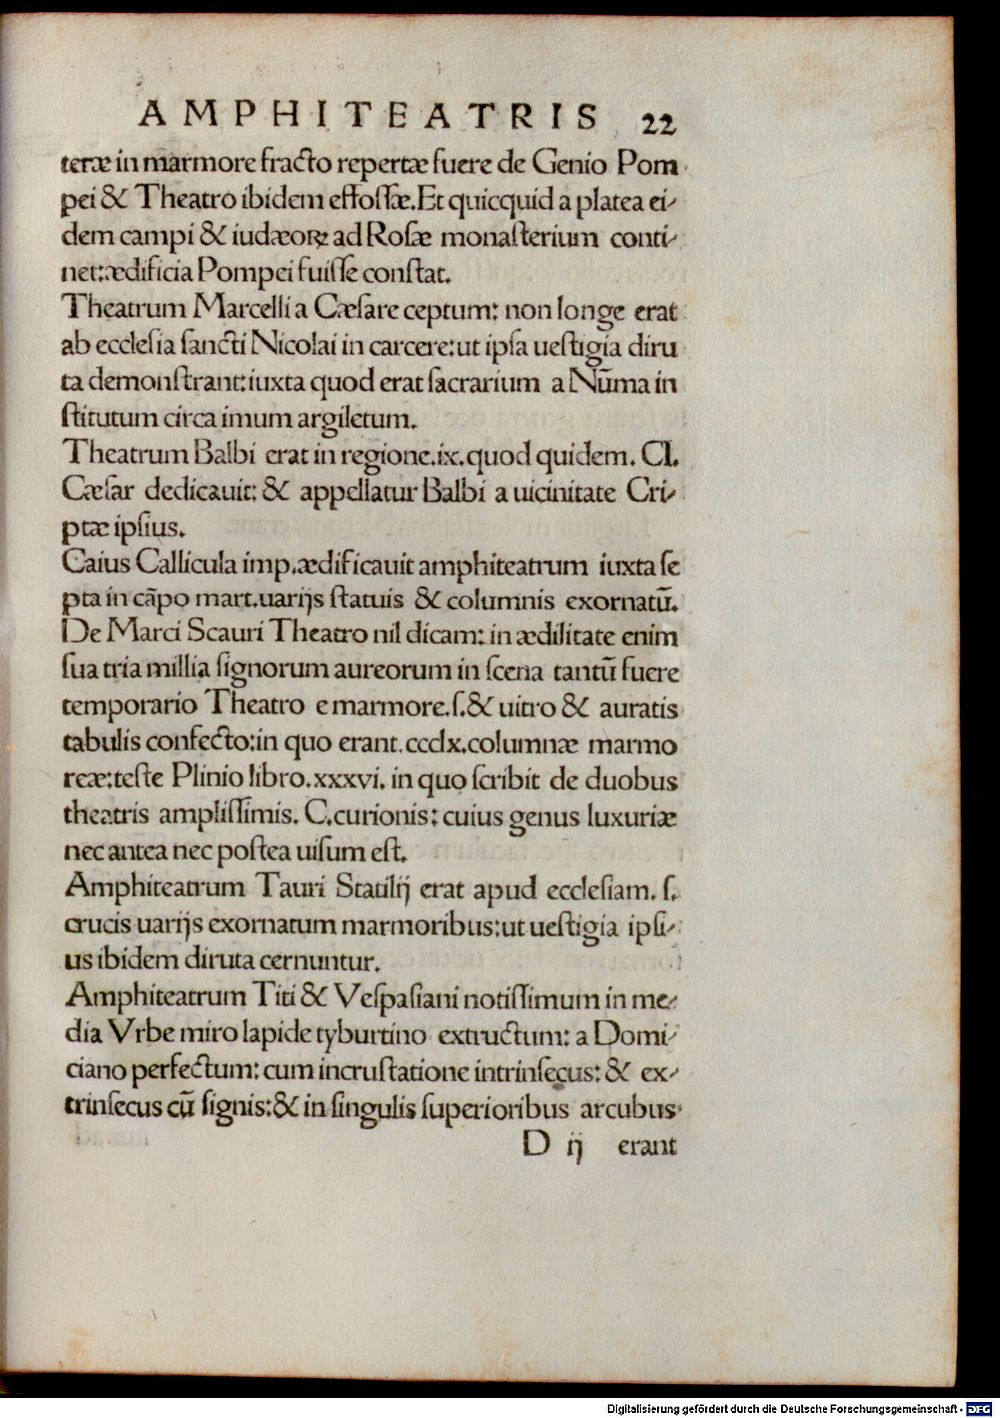 AMPHITEATRIS 22
teræ in marmore fracto repertæ fuere de Genio Pom
pei & Theatro ibidem effoſſæ. Et quicquid a platea ei-
dem campi & iudæoꝝ ad Roſæ monaſterium conti-
net: ædificia Pompei fuiſſe conſtat.
Theatrum Marcelli a Cæſare ceptum: non longe erat
ab eccleſia ſancti Nicolai in carcere: ut ipſa ueſtigia diru
ta demonſtrant: iuxta quod erat ſacrarium a Nūma in
ſtitutum circa imum argiletum.
Theatrum Balbi erat in regione.ix.quod quidem. Cl.
Cæſar dedicauit: & appellatur Balbi a uicinitate Cri-
ptæ ipſius.
Caius Callicula imp.ædificauit amphiteatrum iuxta ſe
pta in cāpo mart.uarijs ſtatuis & columnis exornatū.
De Marci Scauri Theatro nil dicam: in ædilitate enim
ſua tria millia ſignorum aureorum in ſcena tantū fuere
temporario Theatro e marmore.ſ.& uitro & auratis
tabulis confecto: in quo erant.ccclx.columnæ marmo
reæ: teſte Plinio libro.xxxvi. in quo ſcribit de duobus
theatris ampliſſimis. C.curionis: cuius genus luxuriæ
nec antea nec poſtea uiſum eſt.
Amphiteatrum Tauri Statilij erat apud eccleſiam. ſ.
crucis uarijs exornatum marmoribus: ut ueſtigia ipſi-
us ibidem diruta cernuntur.
Amphiteatrum Titi & Veſpaſiani notiſſimum in me-
dia Vrbe miro lapide tyburtino extructum: a Domi-
ciano perfectum: cum incruſtatione intrinſecus: & ex-
trinſecus cū ſignis: & in ſingulis ſuperioribus arcubus
D ij erant
Digitalisierung gefördert durch die Deutsche Forschungsgemeinschaft - DFG